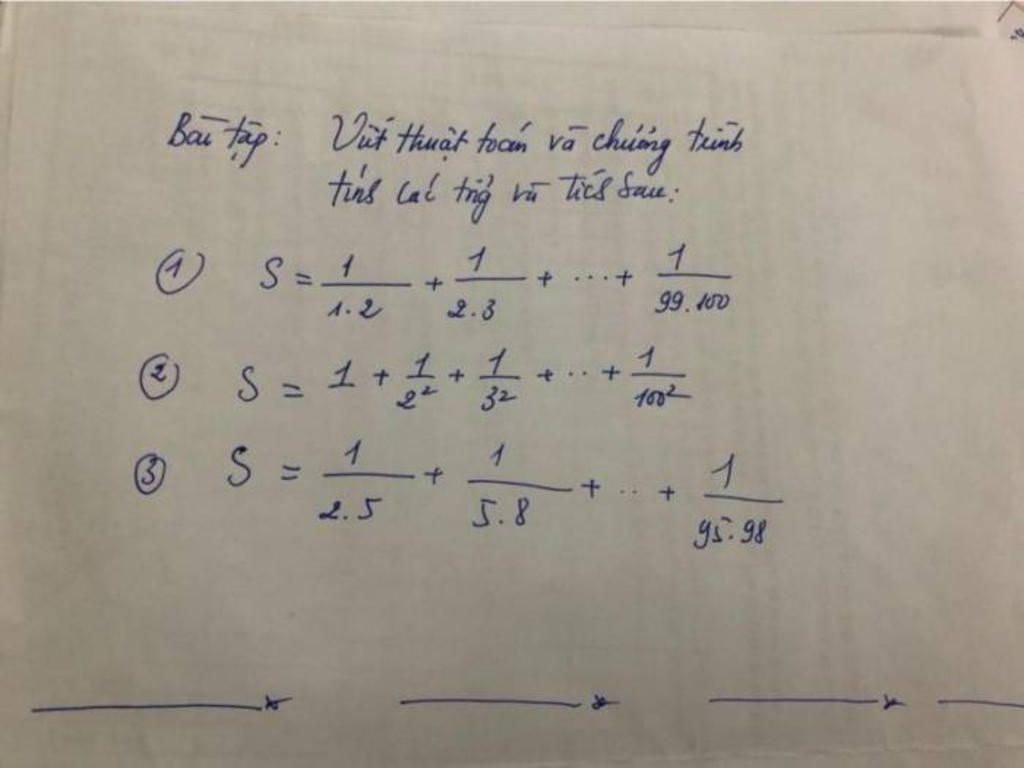 Bài tập: Viết thuật toán và chương trình
tính các tổng và tích sau:
① S = 1/1.2 + 1/2.3 + ... + 1/99.100
② S = 1 + 1/2² + 1/3² + ... + 1/100²
③ S = 1/2.5 + 1/5.8 + ... + 1/95.98